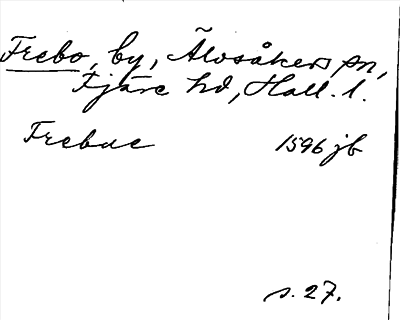 Frebo, by, Älvsåkers sn,
Fjäre hd, Hall. l.
Frebue 1596 jb
s. 27.